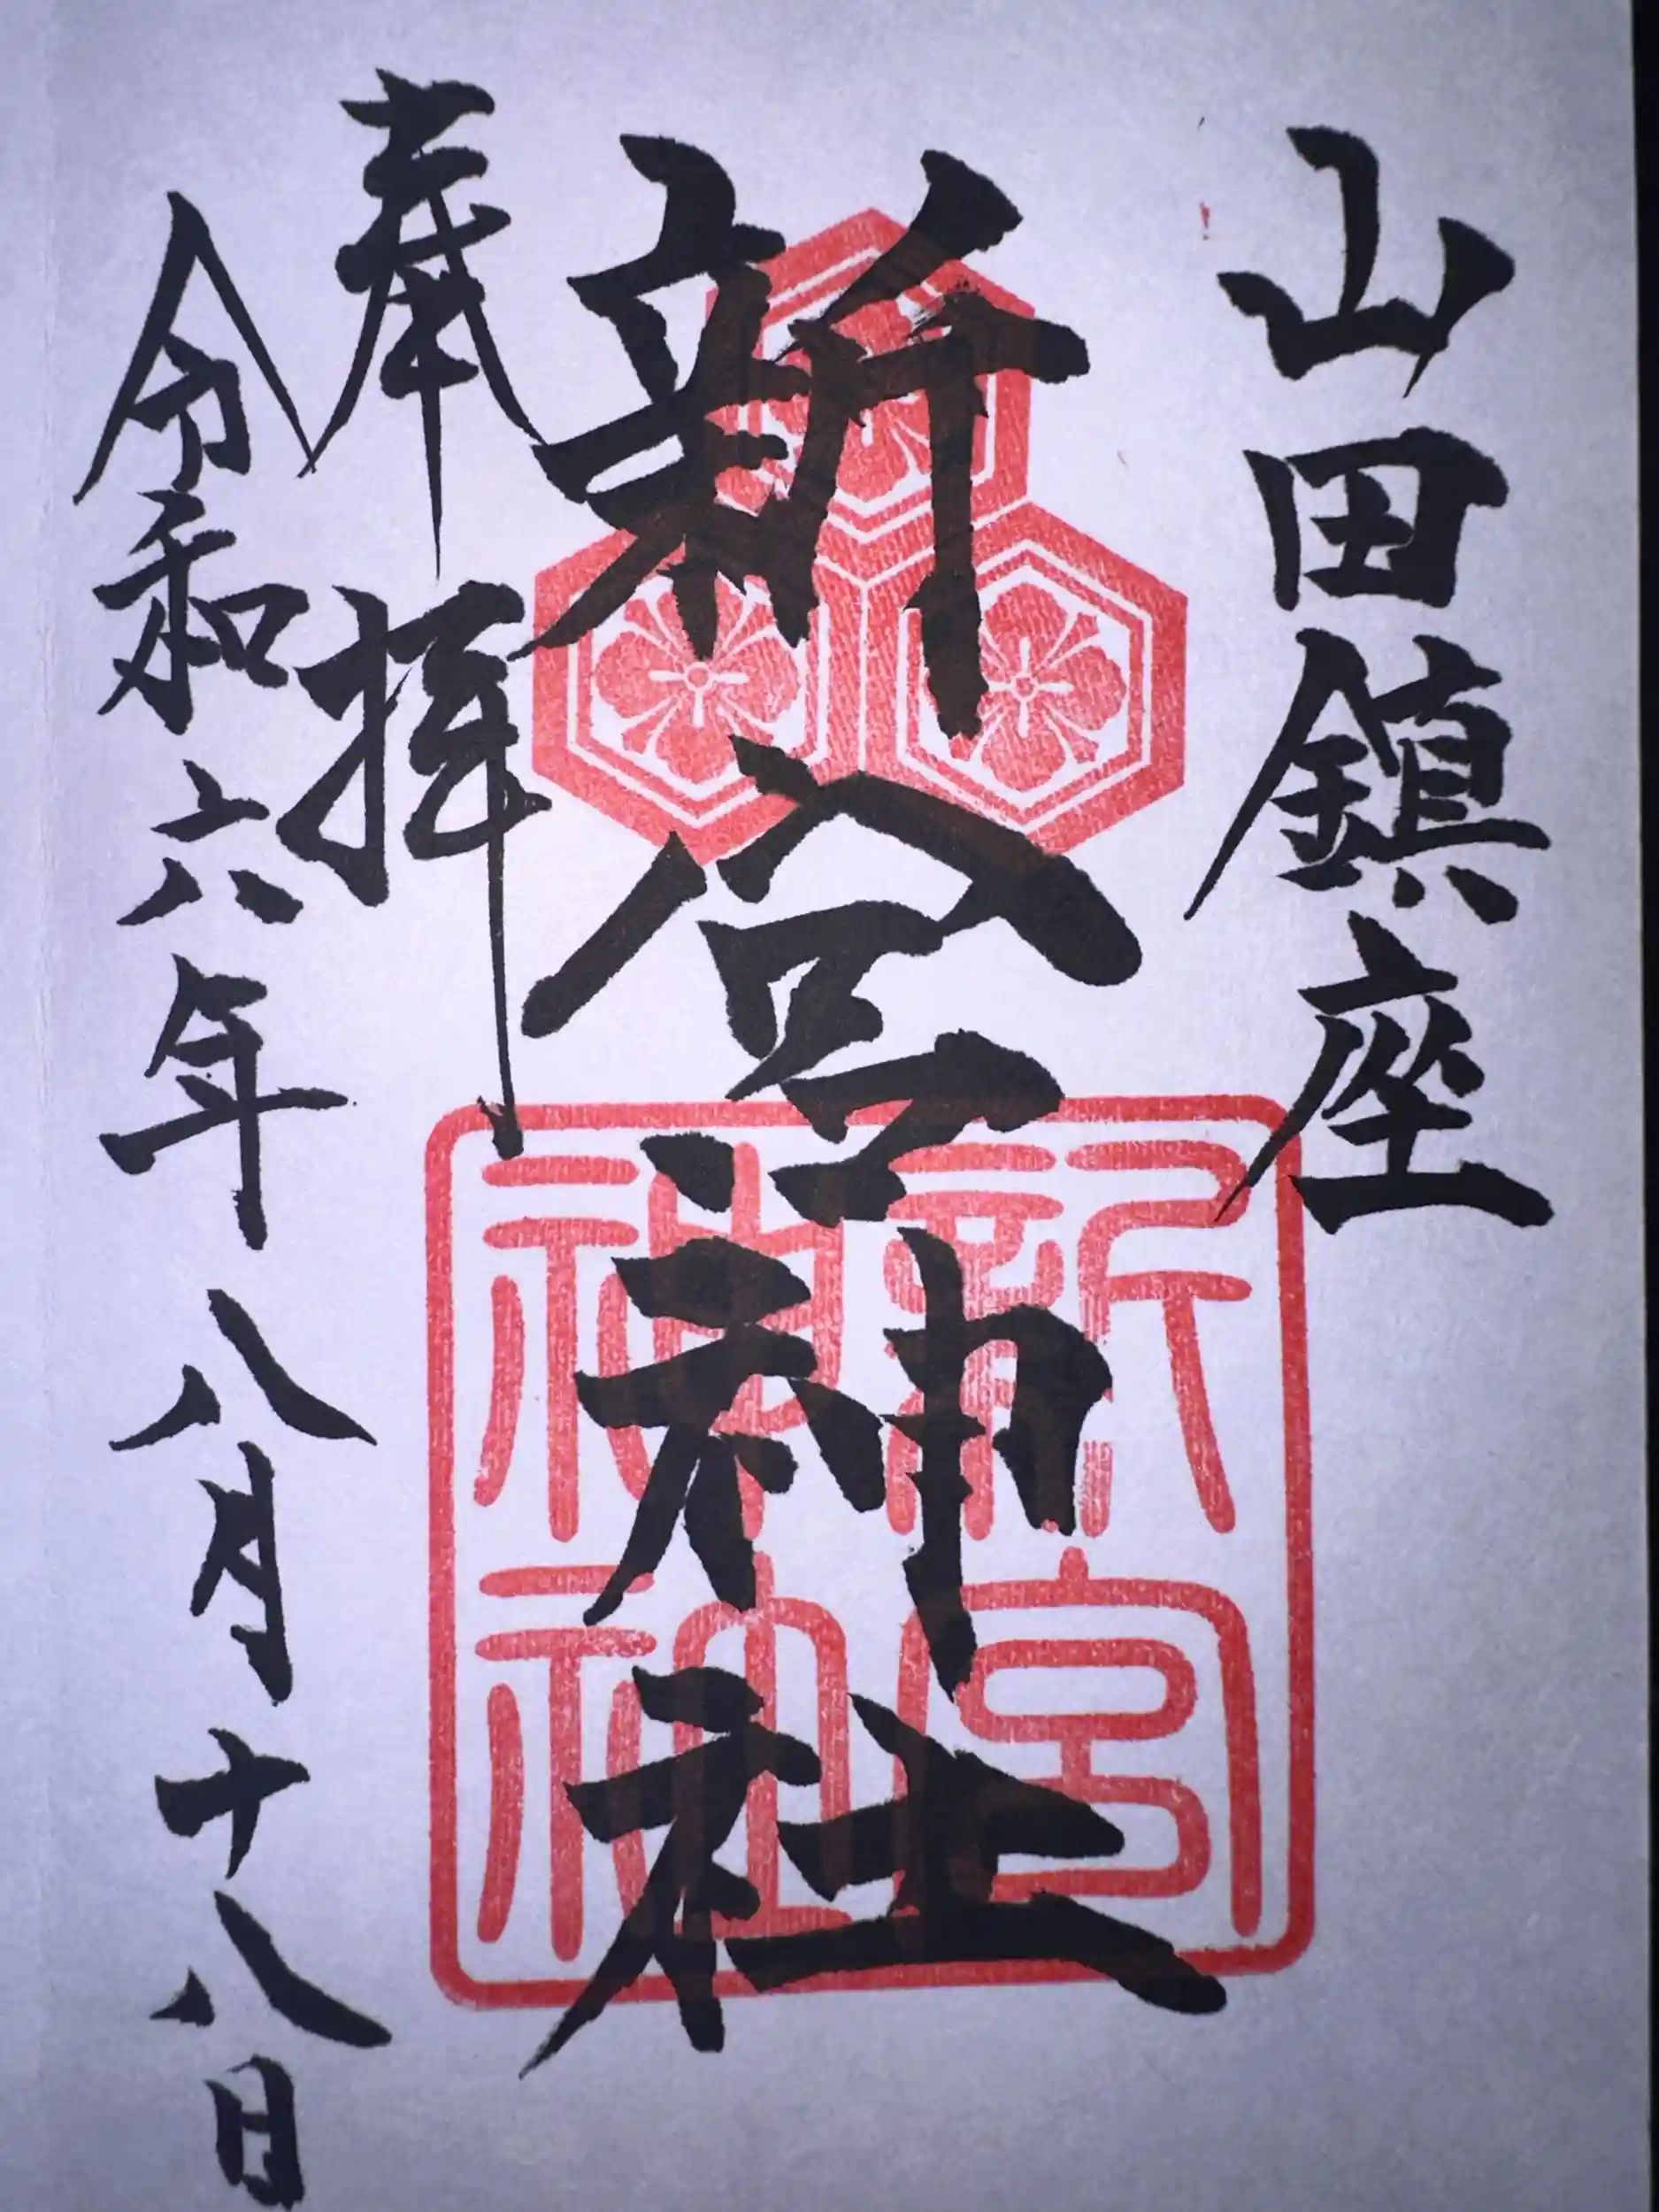 山田鎮座
新宮神社
奉拝
令和六年八月十八日
新宮
神社